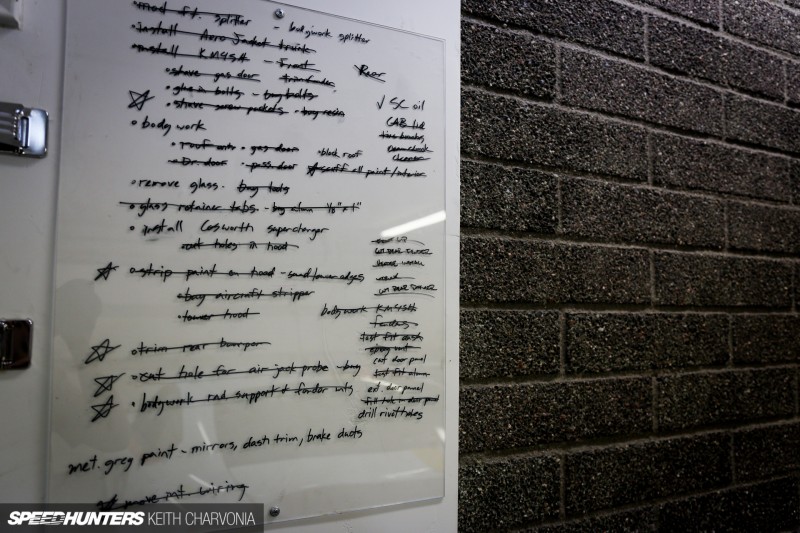 mod ft. splitter - bodywork splitter
install Aero Jacket trunk
install KMGSH - Front
Rear
shave gas door trim fender
glue in bolts - buy bolts
shave screw pockets - buy resin
✓ SC oil
• body work
CAB lid
• roof • gas door • block roof
cleaner
• Dr. door • pass door scuff all paint/interior
• remove glass. buy tabs
• glass retainer tabs - buy alum 1/8" x 1"
• install Cosworth supercharger
cut holes in hood
• strip paint on hood - sand lower edges
buy aircraft stripper
• lower hood
bodywork KMGSH
fenders
test fit dash
• trim rear bumper
cut door panel
• cut hole for air jack probe - buy
test fit alum.
• bodywork rad support & fender mts
ext. door panel
fill hole in door panel
drill rivet holes
met. grey paint - mirrors, dash trim, brake ducts
move pat. wiring
SPEEDHUNTERS KEITH CHARVONIA